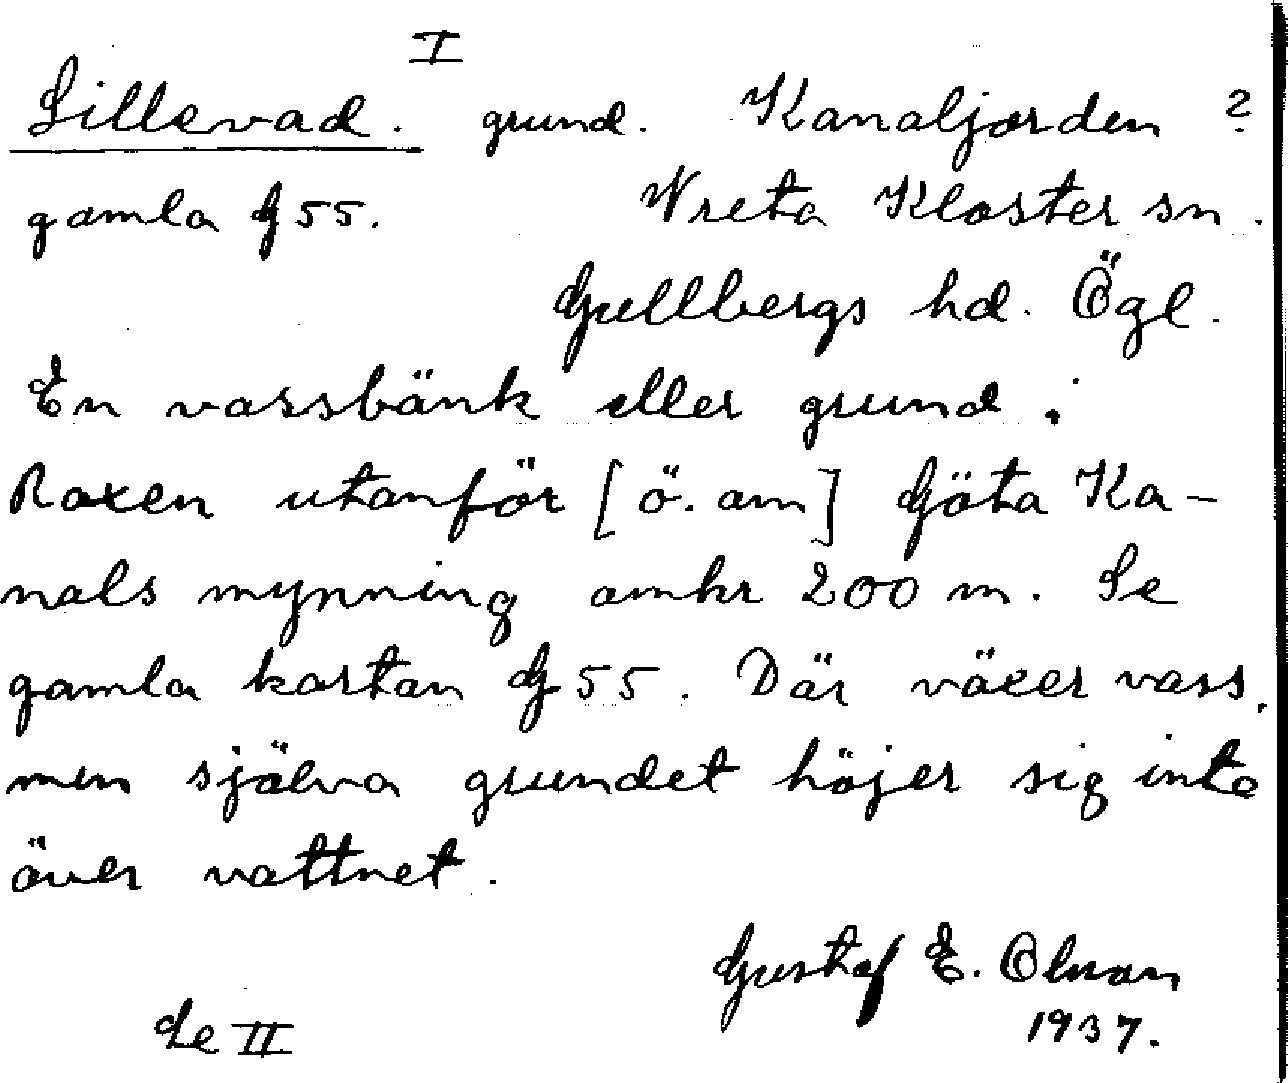 I
Sillevad. grund. Kanaljorden ?
gamla G 55. Wreta Kloster sn.
Gullbergs hd. Ögl.
En vassbänk eller grund i
Roxen utanför [ö. om] Göta Ka-
nals mynning omkr 200 m. Se
gamla kartan G 55. Där växer vass,
men själva grundet höjer sig inte
över vattnet.
Gustaf E. Olsson
Se II 1937.